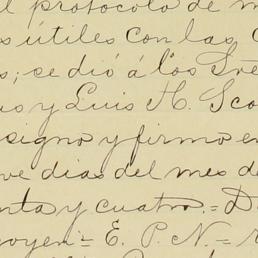 l protocolo de m
s útiles con las
s; se dió á los Sre
us y Luis H. Sco
signo y firmo en
ve dias del mes de
nta y cuatro.= D
oyen:= E. P. N.= r